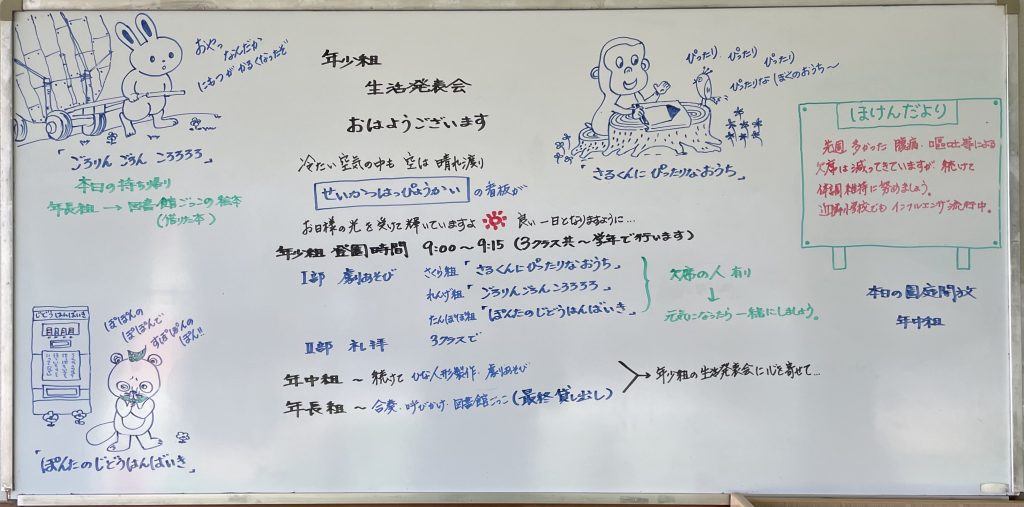 おやっ
なんだか
にもつが かるくなったぞ
「ごろりん ごろん ころろろろ」
本日の持ち帰り
年長組 → 図書館ごっこの絵本
(借りた本)
年少組
生活発表会
おはようございます
冷たい空気の中も 空は 晴れ渡り
せいかつはっぴょうかい の看板が
お日様の光を受けて輝いていますよ 良い一日となりますように…
年少組 登園時間 9:00〜9:15 (3クラス共〜学年で行います)
Ⅰ部 劇あそび さくら組 「さるくんにぴったりなおうち」
れんげ組 「ごろりんごろんころろろろ」
たんぽぽ組 「ぽんたのじどうはんばいき」
Ⅱ部 礼拝 3クラスで
欠席の人 有り
↓
元気になったら一緒にしましょう。
年中組 〜 続けて ひな人形製作・劇あそび
年長組 〜 合奏・呼びかけ・図書館ごっこ(最終貸し出し)
年少組の生活発表会に心を寄せて…
ぴったり、ぴったり ぴったり
ぴったりな ぼくのおうち〜
「さるくんに ぴったりなおうち」
ほけんだより
先週 多かった 腹痛・嘔吐等による
欠席は減ってきていますが 続けて
体調維持に努めましょう。
近隣小学校でも インフルエンザ流行中。
本日の園庭開放
年中組
じどうはんばいき
ぽぽんの
ぽぽんで
すぽぽんの
ぽん!!
「ぽんたのじどうはんばいき」